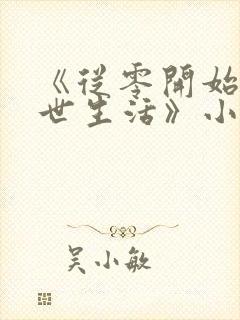 《從零開始
世生活》小
吴小敏